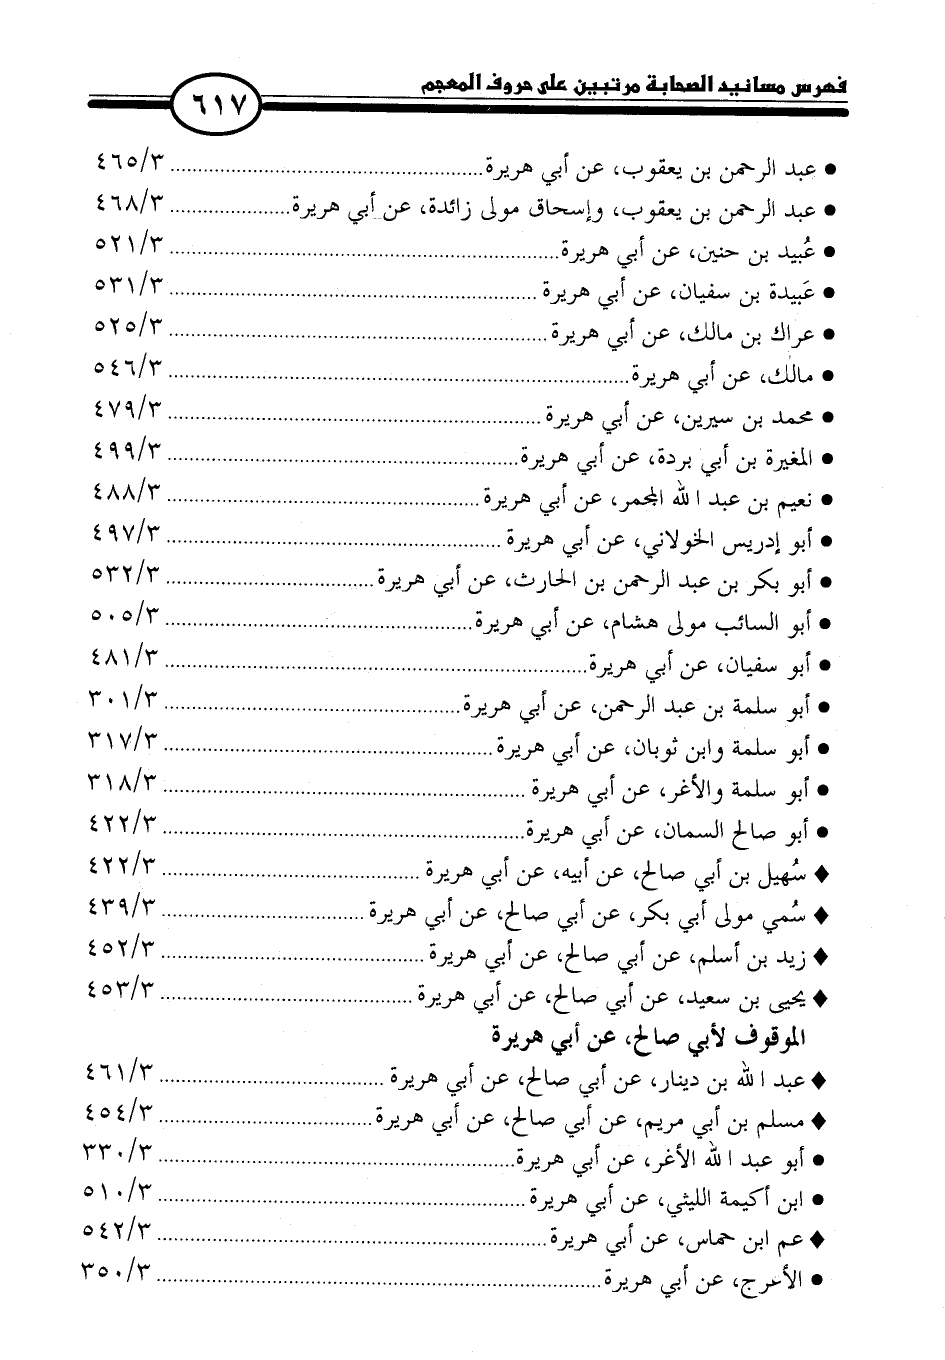 فهرس مسانيد الصحابة مرتبين على حروف المعجم
٦١٧
● عبد الرحمن بن يعقوب، عن أبي هريرة ........ ٤٦٥/٣
● عبد الرحمن بن يعقوب، وإسحاق مولى زائدة، عن أبي هريرة ........ ٤٦٨/٣
● عُبيد بن حنين، عن أبي هريرة ........ ٥٢١/٣
● عَبيدة بن سفيان، عن أبي هريرة ........ ٥٣١/٣
● عراك بن مالك، عن أبي هريرة ........ ٥٢٥/٣
● مالك، عن أبي هريرة ........ ٥٤٦/٣
● محمد بن سيرين، عن أبي هريرة ........ ٤٧٩/٣
● المغيرة بن أبي بردة، عن أبي هريرة ........ ٤٩٩/٣
● نعيم بن عبد الله المجمر، عن أبي هريرة ........ ٤٨٨/٣
● أبو إدريس الخولاني، عن أبي هريرة ........ ٤٩٧/٣
● أبو بكر بن عبد الرحمن بن الحارث، عن أبي هريرة ........ ٥٣٢/٣
● أبو السائب مولى هشام، عن أبي هريرة ........ ٥٠٥/٣
● أبو سفيان، عن أبي هريرة ........ ٤٨١/٣
● أبو سلمة بن عبد الرحمن، عن أبي هريرة ........ ٣٠١/٣
● أبو سلمة وابن ثوبان، عن أبي هريرة ........ ٣١٧/٣
● أبو سلمة والأغر، عن أبي هريرة ........ ٣١٨/٣
● أبو صالح السمان، عن أبي هريرة ........ ٤٢٢/٣
♦ سُهيل بن أبي صالح، عن أبيه، عن أبي هريرة ........ ٤٢٢/٣
♦ سُمي مولى أبي بكر، عن أبي صالح، عن أبي هريرة ........ ٤٣٩/٣
♦ زيد بن أسلم، عن أبي صالح، عن أبي هريرة ........ ٤٥٢/٣
♦ يحيى بن سعيد، عن أبي صالح، عن أبي هريرة ........ ٤٥٣/٣
الموقوف لأبي صالح، عن أبي هريرة
♦ عبد الله بن دينار، عن أبي صالح، عن أبي هريرة ........ ٤٦١/٣
♦ مسلم بن أبي مريم، عن أبي صالح، عن أبي هريرة ........ ٤٥٤/٣
● أبو عبد الله الأغر، عن أبي هريرة ........ ٣٣٠/٣
● ابن أكيمة الليثي، عن أبي هريرة ........ ٥١٠/٣
♦ عم ابن حماس، عن أبي هريرة ........ ٥٤٢/٣
● الأعرج، عن أبي هريرة ........ ٣٥٠/٣